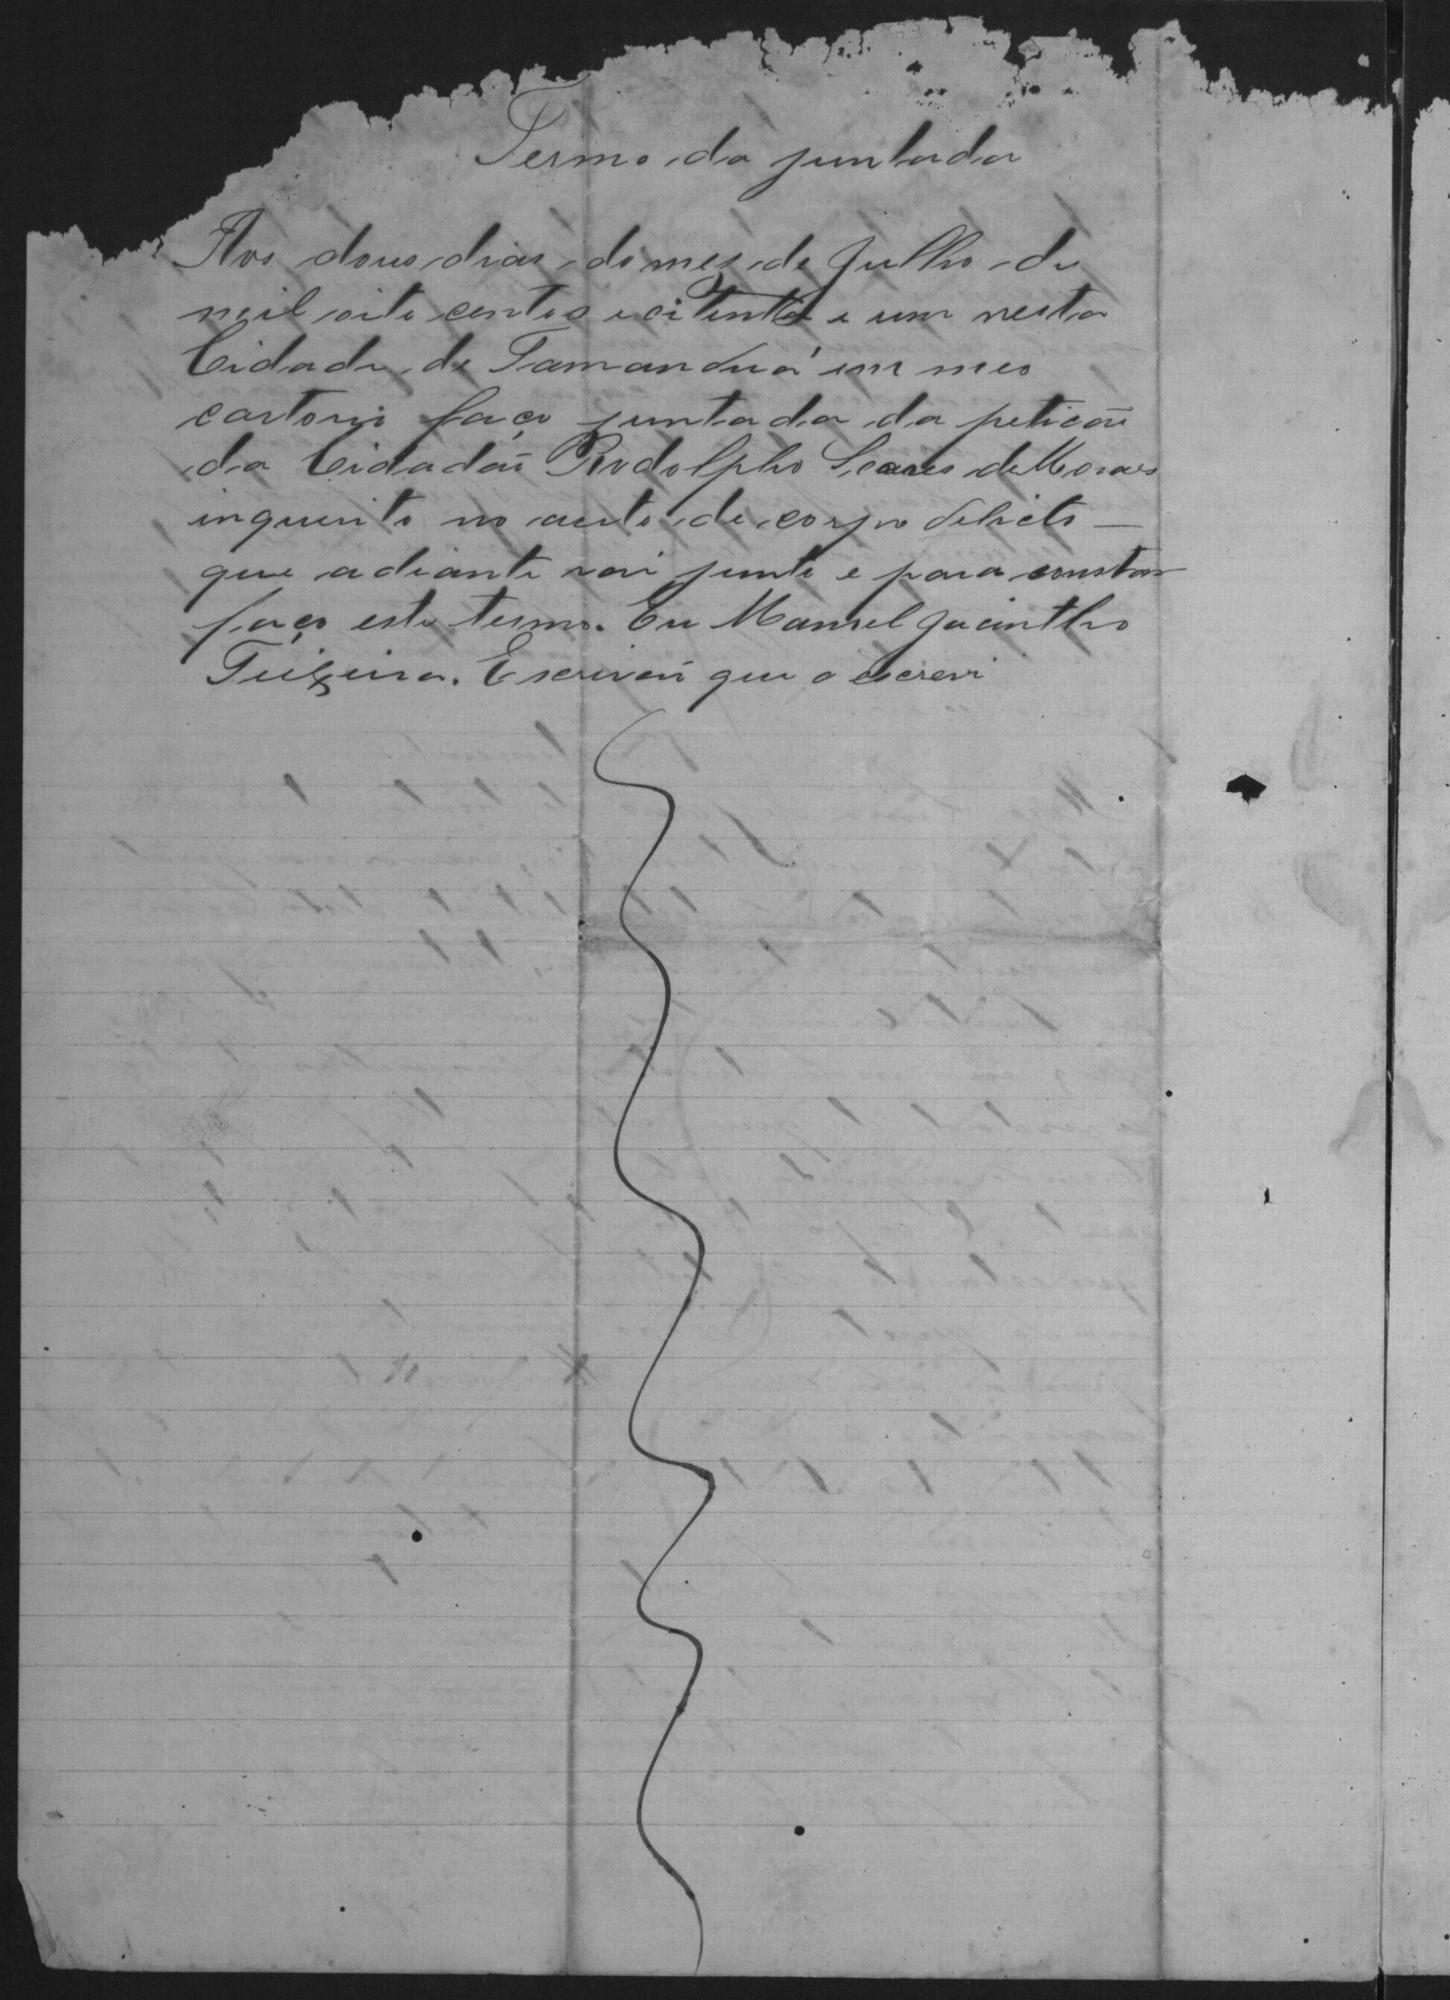 Termo da juntada
Aos dous dias do mes de Julho de
mil oito centos e oitenta e um nesta
Cidade de Tamanduá em meo
cartorio faço juntada da peticaõ
da Cidadaõ Rodolpho Soares de Moraes
inquerito no auto de corpo delicto —
que adiante vai junto e para constar
faço este termo. Eu Manoel Jacintho
Teixeira. Escrivaõ que o escrevi